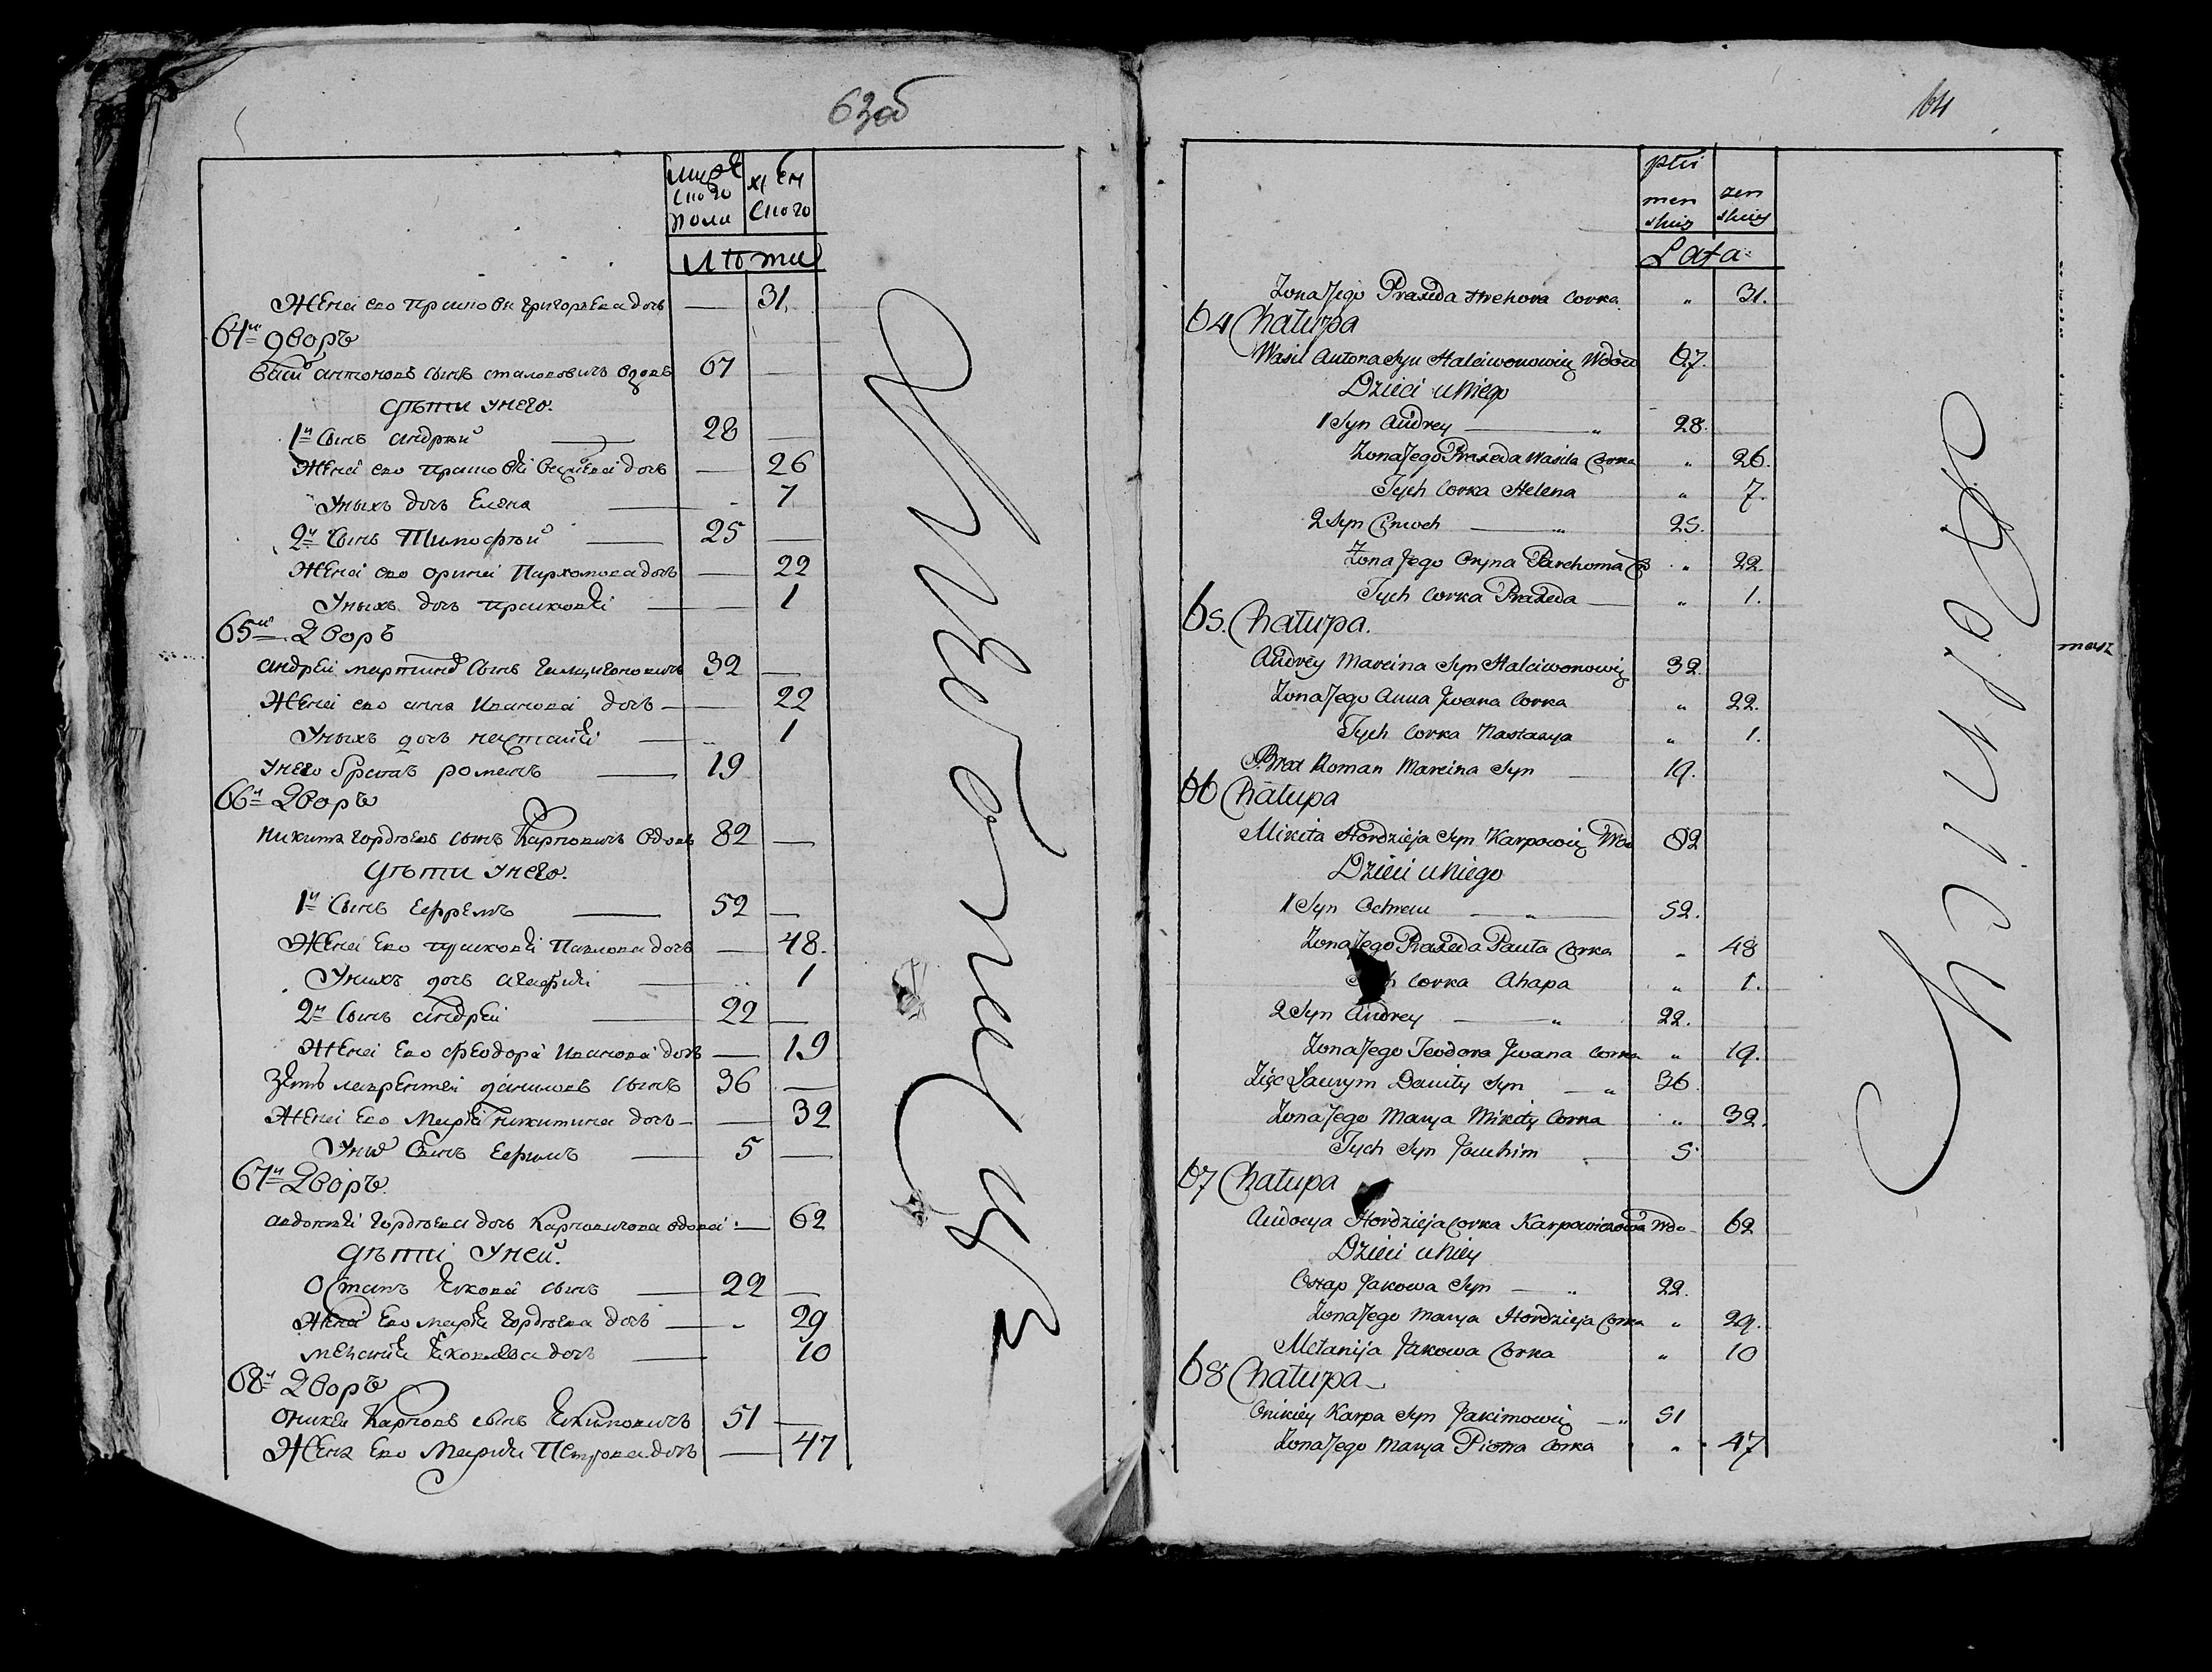 63об
муже
ского
пола
жен
ского
лѣта
Жена ево прасковя григорьева дочь — 31.
64й дворъ
антоновъ сынъ вдовъ 67 —
дѣти унего.
1й сынъ андрѣй — 28 —
Жена ево прасковя дочь — 26
уныхъ дочь Елена — 7
2й сынъ Тимофѣй — 25 —
Жена ево орина Пархомова дочь — 22
уныхъ дочь прасковя — 1
65й Дворъ
андрей мартина сынъ 32 —
Жена ево анна Иванова дочь — 22
уныхъ дочь настася — 1
унего братъ романъ — 19
66й Дворъ
никита гордѣевъ сынъ Карповичъ вдовъ 82 —
дѣти унего.
1й сынъ Ефремъ — 52 —
Жена Ево прасковя Павлова дочь — 48.
уныхъ дочь агафия — 1
2й сынъ андрей — 22 —
Жена Ево феодора Иванова дочь — 19
зять лаврентей даниловъ сынъ 36 —
Жена Ево Маря никитина дочь — 32
сынъ Ефимъ — 5 —
67й Дворъ.
авдотя гордѣева дочь Карповичова вдова — 62
дѣти уней.
Остапъ якова сынъ — 22 —
жена Ево маря гордѣева дочь — 29
яковлева дочь — 10
68й Дворъ
оникей Карповъ сынъ якимовичъ 51 —
Жена Ево Мария Петрова дочь — 47
64
płci
men
skiey
żen
skiey
Lata
Zona Jego Praxeda Hrehora Corka " 31.
64 Chałupa
Wasil Antona Syn Halciwonowicz Wdow 67.
Dzieci u Niego
1 Syn Andrey — " 28.
Zona Jego Praxeda Wasila Corka " 26.
Tych Corka Helena " 7.
2 Syn — " 25.
Zona Jego Oryna Parchoma Co " 22.
Tych Corka Praxeda — " 1.
65. Chałupa.
Andrey Marcina Syn Halciwonowicz 32.
Zona Jego Anna Jwana Corka " 22.
Tych Corka Nastasya " 1.
Brat Roman Marcina Syn — 19.
66 Chałupa
Mikita Hordzieja Syn Karpowicz Wdo 82
Dzieci u Niego
1 Syn Ochrem — " — 52.
Zona Jego Praxeda Pauła Corka " 48
Corka Ahapa " 1.
2 Syn Andrey — " 22.
Zona Jego Teodora Jwana Corka " 19.
Zięc Ławrym Daniły Syn — " 36.
Zona Jego Marya Mikity Corka " 32.
Tych Syn Jauchim — 5.
67 Chałupa
Audocya Hordzieja Corka Karpowiczowa Wdo - 62
Dzieci u Niey
Ostap Jakowa Syn — " 22.
Zona Jego Marya Hordzieja Corka " 29.
Mełanija Jakowa Corka " 10
68 Chałupa
Onikiey Karpa Syn Jakimowicz — " 51
Zona Jego Marya Piotra Corka " 47